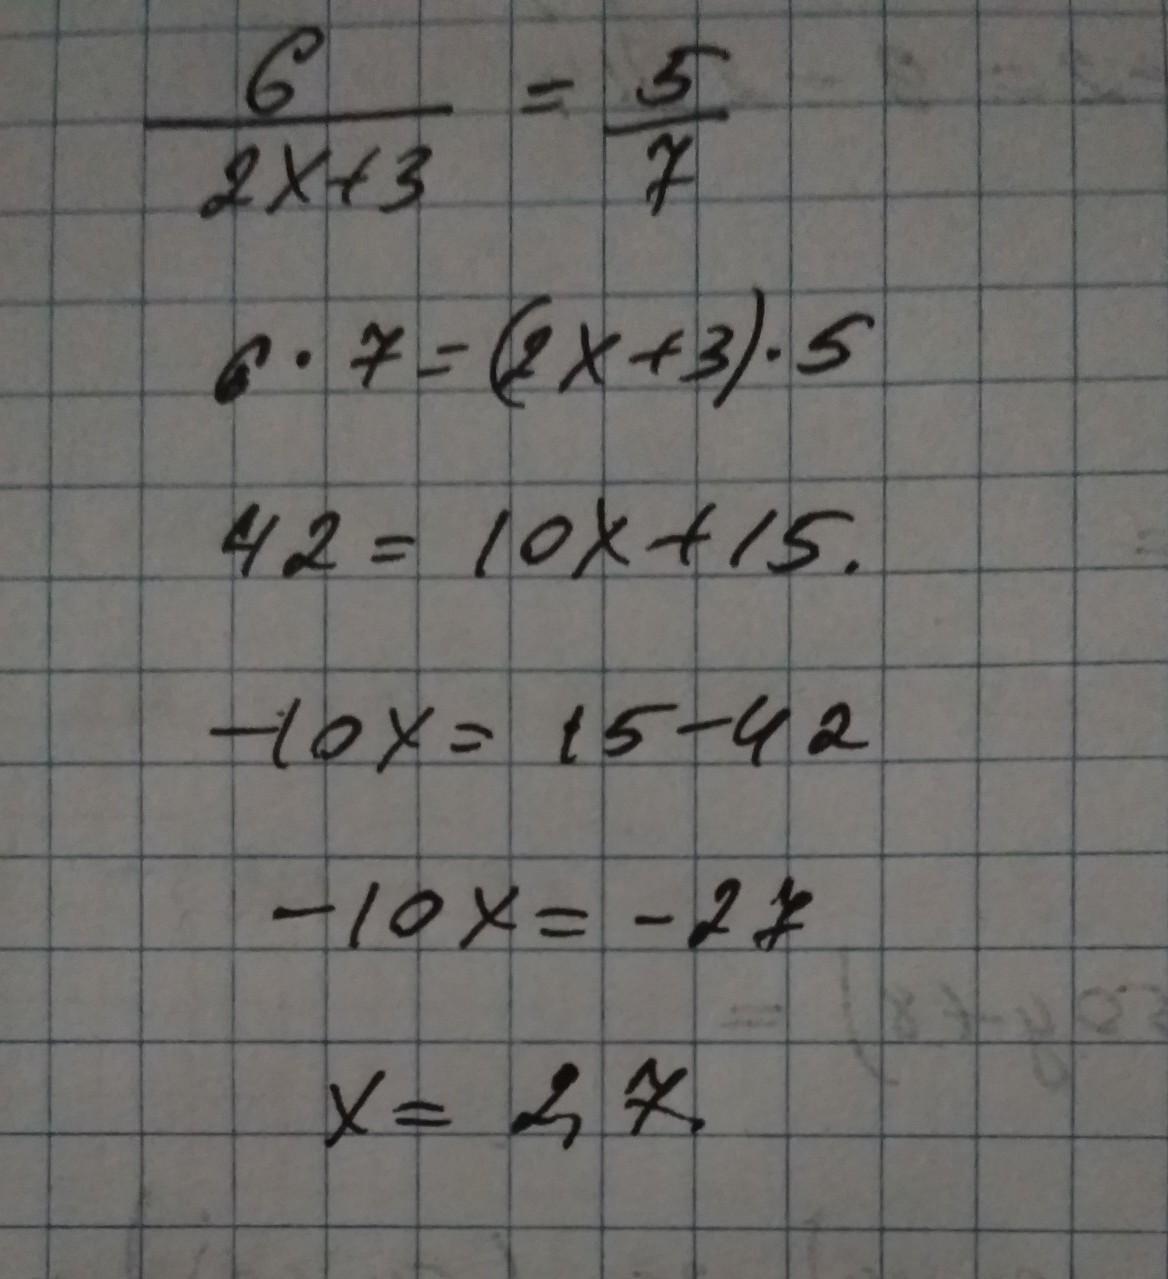 6/(2x+3) = 5/7
6 · 7 = (2x+3) · 5
42 = 10x + 15.
-10x = 15 - 42
-10x = -27
x = 2,7.